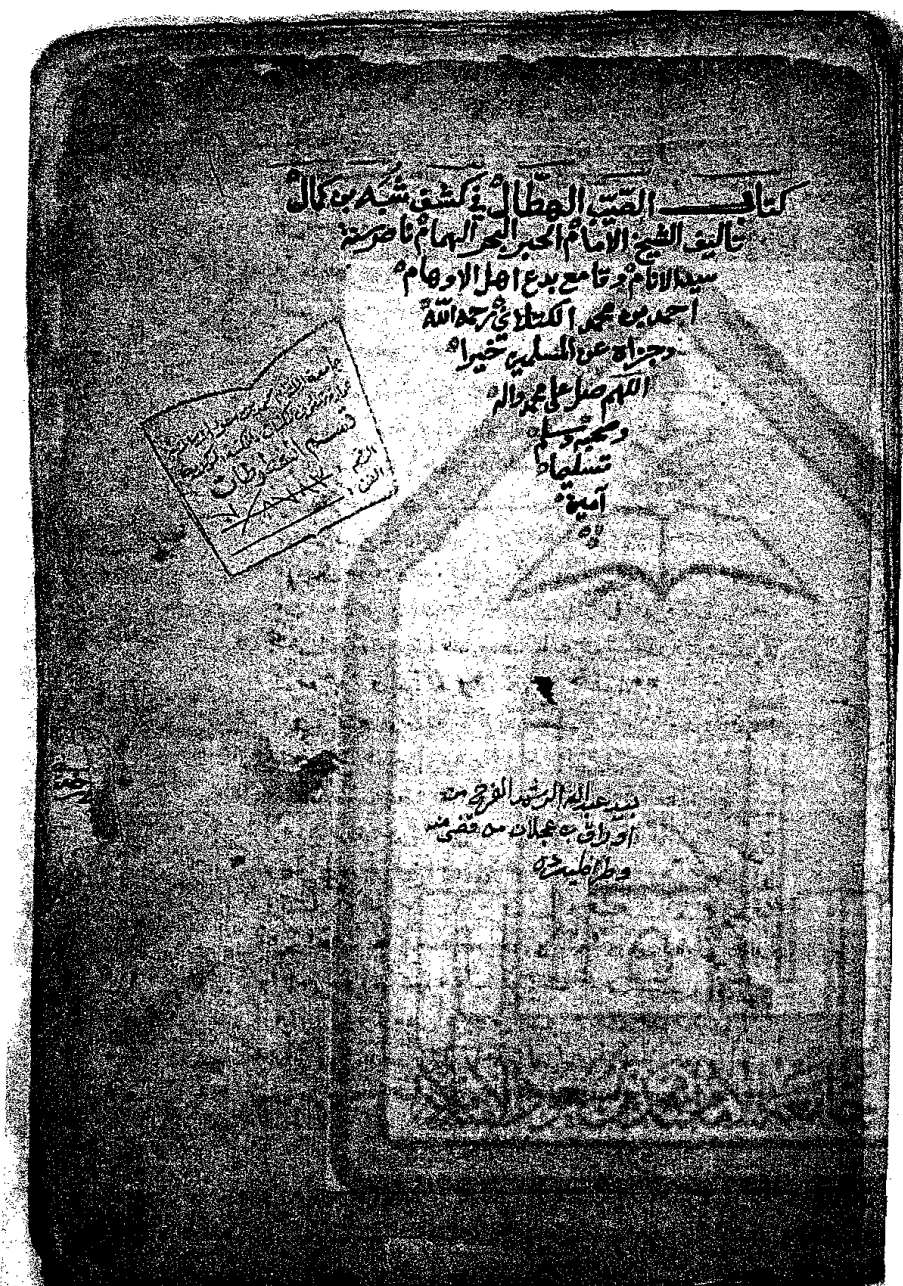 كتاب الصيب الهطال في كشف شبه بن كمال
تاليف الشيخ الامام الحبر البحر الهمام ناصر سنة
سيد الانام وقامع بدع اهل الاوهام
احمد بن محمد الكتلاني رحمه الله
وجزاه عن المسلمين خيرا
اللهم صل على محمد واله
وصحبه وسلم
تسليما
آمين
جامعة الامام محمد بن سعود الاسلامية
قسم المخطوطات
الرقم
الفن
بيد عبدالله الرشيد الفرج من
اوراق بن عجلان من قضى منه
وطرا